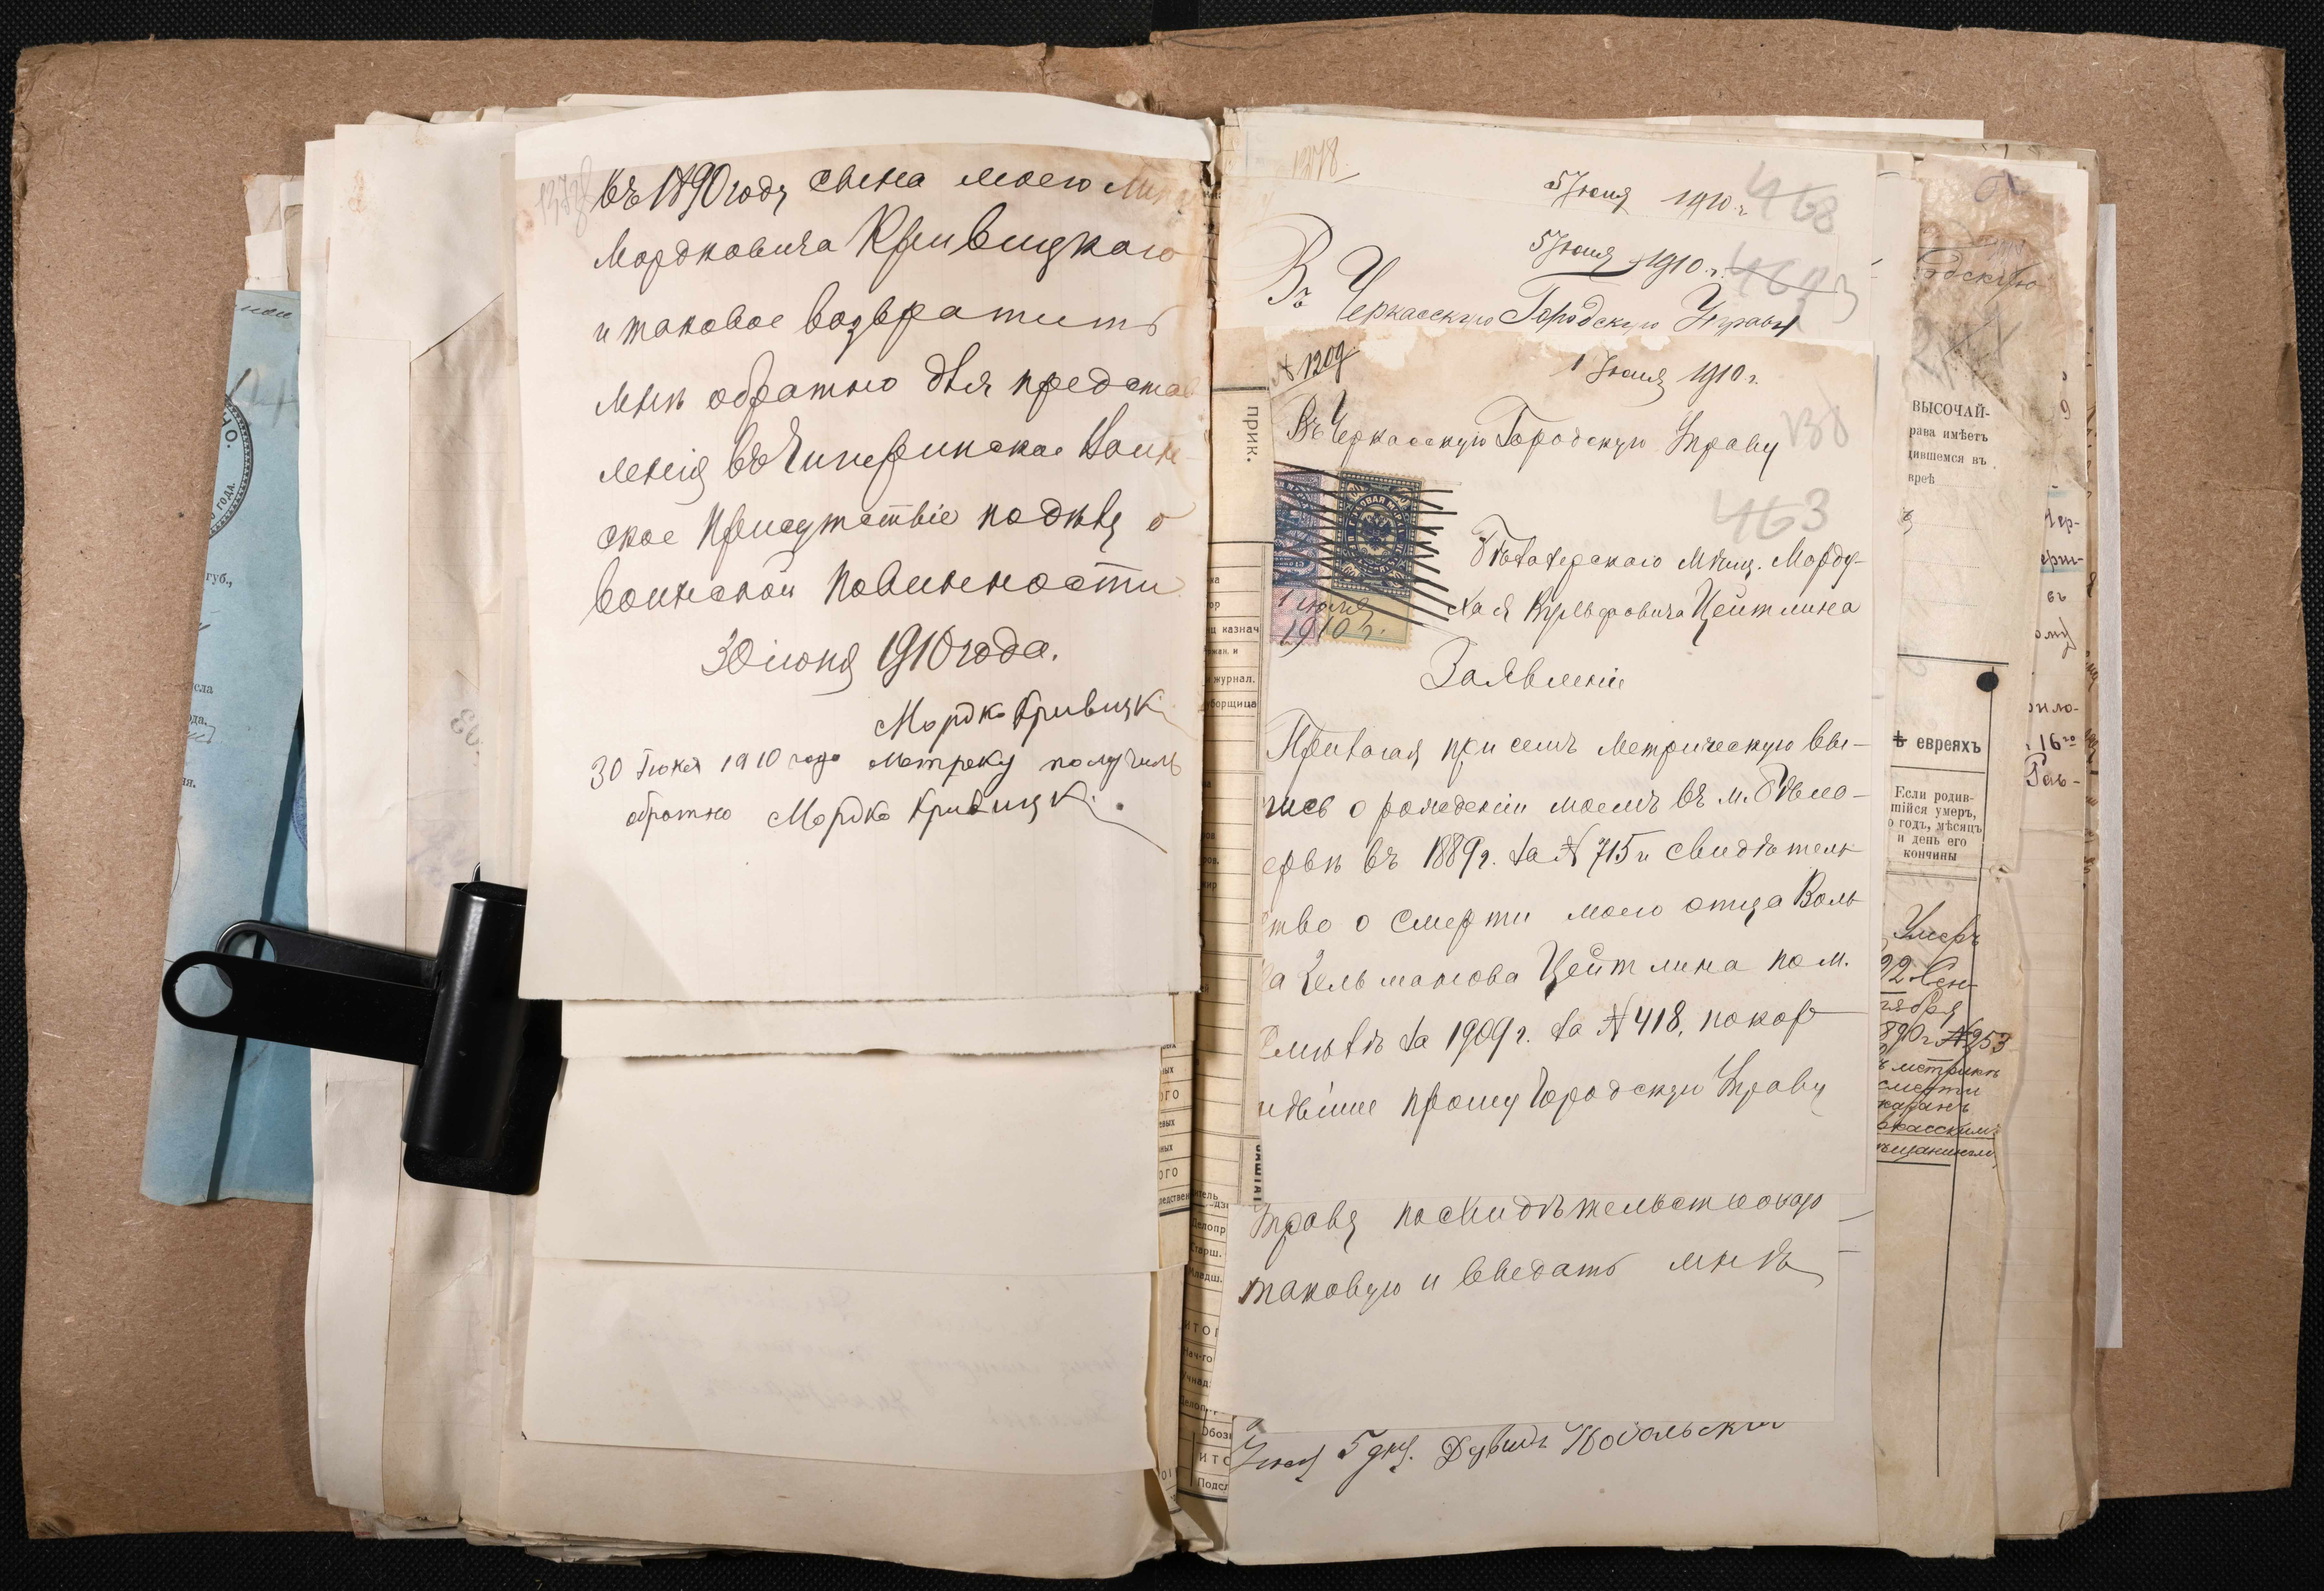 въ 1890 году сына моего
Мордковича Кривицкаго
и таковое возвратить
мнѣ обратно для предста
ленія въ Чигиринское Воин-
ское Присутствіе по дѣлу о
воинской повинности
30 июня 1910 года.
Мордко Кривицк
30 Іюня 1910 года метреку получилъ
обратно Мордко Кривицк
1278.
5 Іюля 1910 г.
468
5 Іюля 1910 г.
Въ Черкасскую Городскую Управу
№ 1209
1 Іюля 1910 г.
Въ Черкасскую Городскую Управу
463
1 июля
1910 г.
Бѣлозерскаго Мѣщ. Морду-
хая Вульфовича Цейтлина
Заявленіе
Прилагая при семъ метрическую вы-
пись о рожденіи моемъ въ м. Бѣло-
ерьи въ 1889 г. за № 715 и свидѣтель-
тво о смерти моего отца Воль
а Зельманова Цейтлина по м.
Смѣлѣ за 1909 г. за № 418, покор-
нѣйше прошу Городскую Управу
Управу по свидѣтельствов
таковую и выдать мнѣ
Іюля 5 дня. Дувидъ
ПРИК.
казнач
и журнал.
уборщица
ВЫСОЧАЙ-
рава имѣетъ
дившемся въ
вреѣ
ѣ евреяхъ
Если родив-
шійся умеръ,
о годъ, мѣсяцъ
и день его
кончины
Умеръ
22 Сен-
тября
890 г. № 253
ъ метрикѣ
смерти
губ.,
сла
ода.
О ГОДА.
Делопр
Старш.
Младш.
ИТОГ
Нач-го
Обоз
ИТО
Подсл
16го